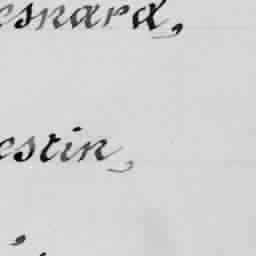 esnard,
estin,